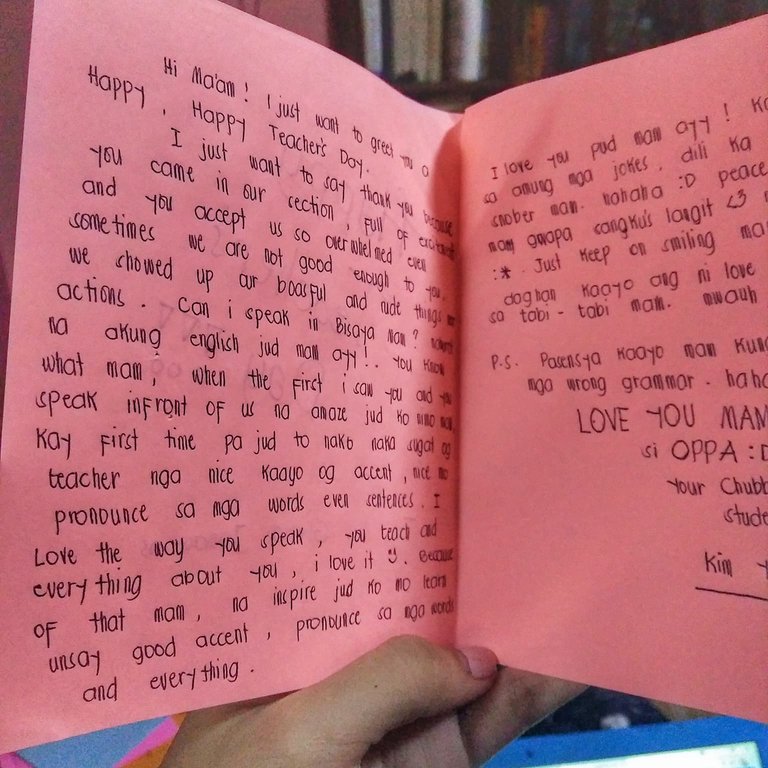 Hi Ma'am! I just want to greet you a
Happy, Happy Teacher's Day.
I just want to say thank you because
you came in our section, full of
and you accept us so overwhelmed even
sometimes we are not good enough to you.
we showed up our boasful and rude things
actions. Can i speak in Bisaya Mam?
na akung english jud mam ayy!.. You know
what mam, when the first i saw you and you
speak infront of us na amaze jud ko nimo
Kay first time pa jud to nako naka sugat og
teacher nga nice kaayo og accent, nice mo
pronounce sa mga words even sentences. I
Love the way you speak, you teach and
everything about you, i love it. Because
of that mam, na inspire jud ko mo learn
unsay good accent, pronounce sa mga words
and everything.
I love you pud mam ayy!
sa among mga jokes. dili ka
snober mam. hahaha :D peace
mam gwapa sangkus langit <3
:*. Just keep on smiling
daghan kaayo ang ni love
sa tabi-tabi mam. mwuah
P.s. Pasensya kaayo mam kung
mga wrong grammar. haha
LOVE YOU MAM
si OPPA :D
Your Chubb
stude
Kim